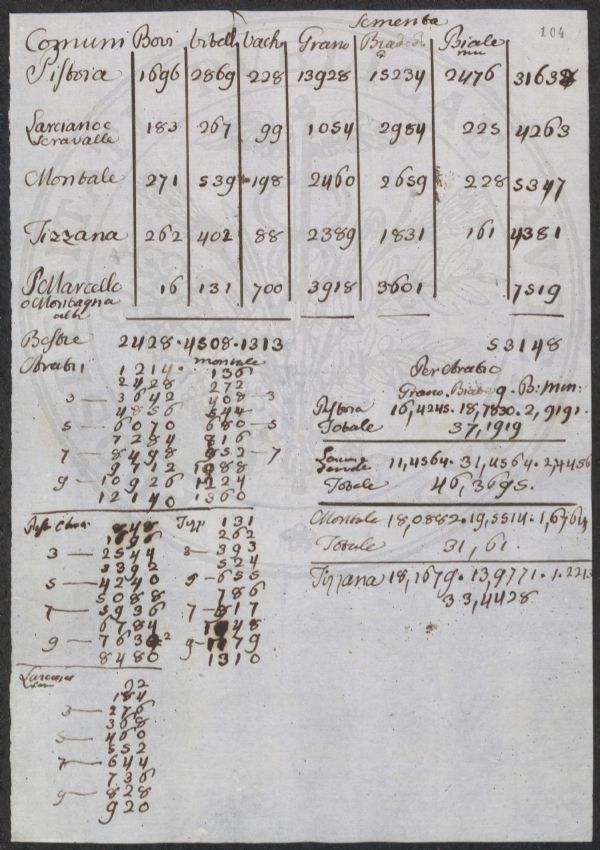 Sementa
104
Comuni Bovi Vitell Vach Grano Biade Biade
Pistoia 1696 2869 228 13928 15234 2476 31638
Larciano e 183 267 99 1054 2984 225 4263
Seravalle
Montale 271 539 198 2460 2659 228 5347
Tizzana 262 402 88 2389 1831 161 4381
S Marcello 16 131 700 3918 3601 7519
o Montagna
alta
Bestie 2428 · 4508 · 1313 53148
Aratri 1214 · Montale 136
2428 272
3 — 3642 408 — 3
4856 544
5 — 6070 680 — 5
7284 816
7 — 8498 952 — 7
9712 1088
9 — 10926 1224
12140 1360
Per Aratro
Grano. Biade g. B: min:
Pistoia 16,4245 · 18,7830 · 2,9191 ·
Totale 37,1919
11,4564 · 31,4564 · 2,4456
Totale 46,3695 ·
Montale 18,0882 · 19,5514 · 1,6764
Totale 31,61 ·
Tizzana 18,1679 · 13,9771 · 1,2213
33,4428
848 Tizz 131
1696 262
3 — 2544 3 — 393
3392 524
5 — 4240 5 — 655
5088 786
7 — 5936 7 — 917
6784 1048
9 — 7632 9 — 1179
8480 1310
Larciano
92
184
3 — 276
368
5 — 460
552
7 — 644
736
9 — 828
920